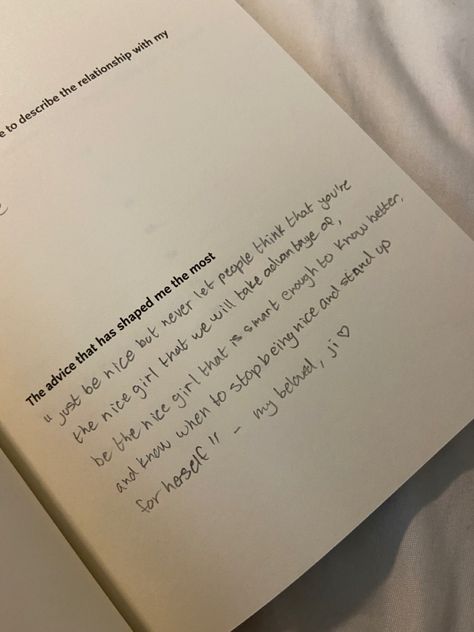 e to describe the relationship with my
The advice that has shaped me the most
" just be nice but never let people think that you're
the nice girl that we will take advantage of,
be the nice girl that is smart enough to know better,
and know when to stop being nice and stand up
for herself " - my beloved, ji ♡